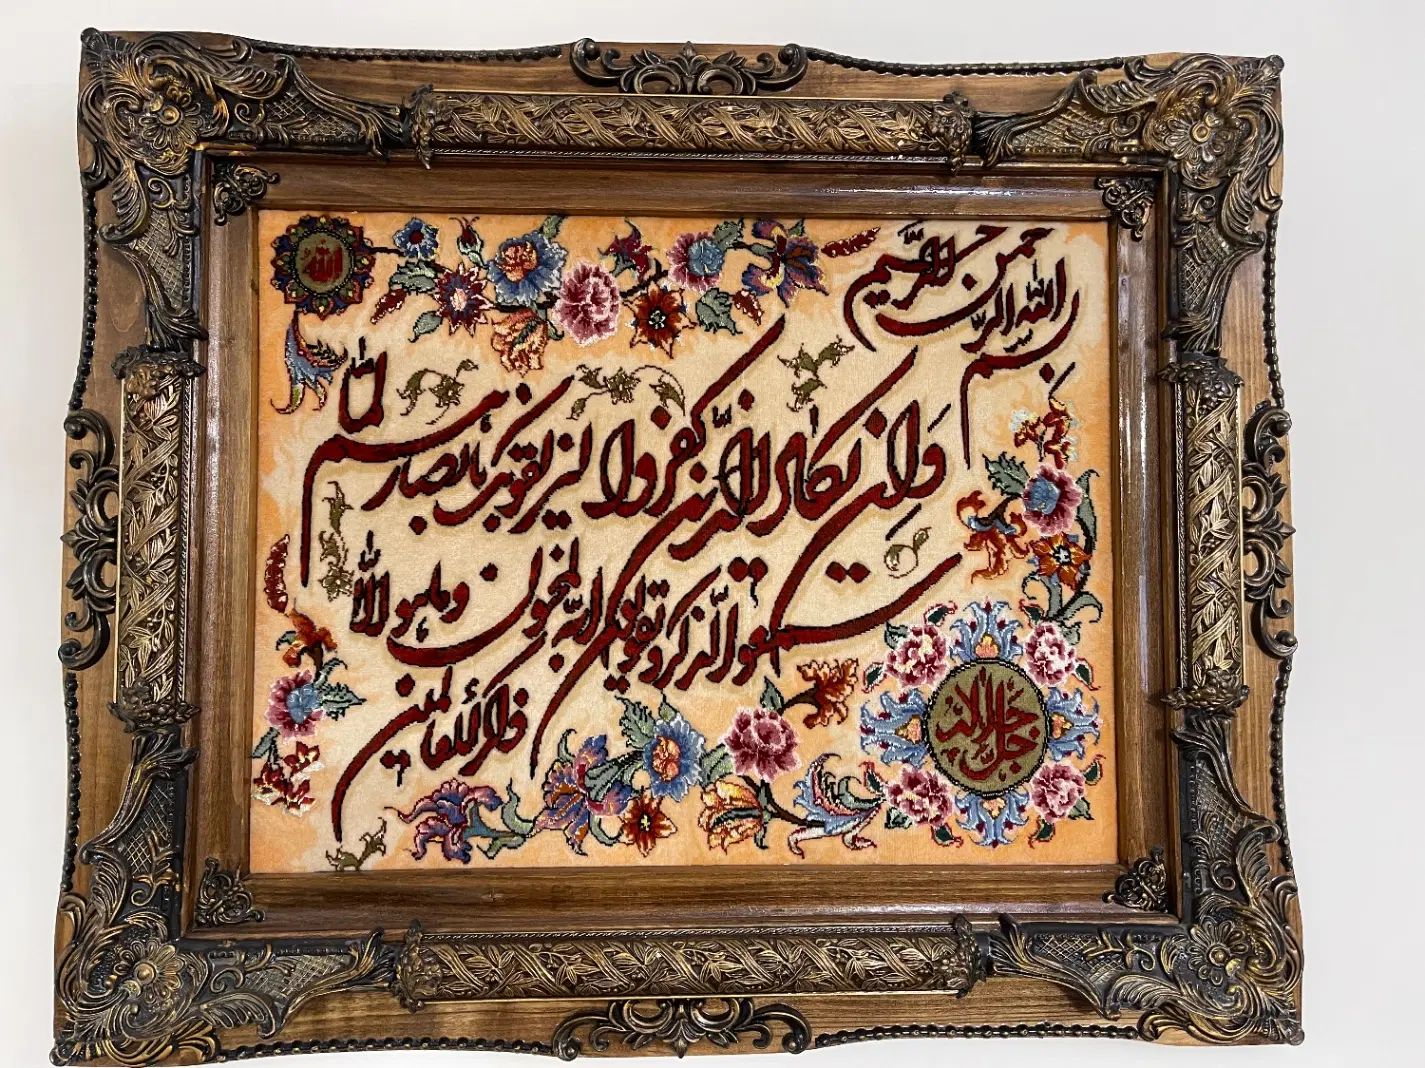 الله
بسم الله الرحمن الرحيم
وَان يكاد الذين كفروا ليزلقونك بابصارهم لمّا
سمعوا الذكر و يقولون انه لمجنون وما هو الّا
ذكر للعالمين
جل جلاله